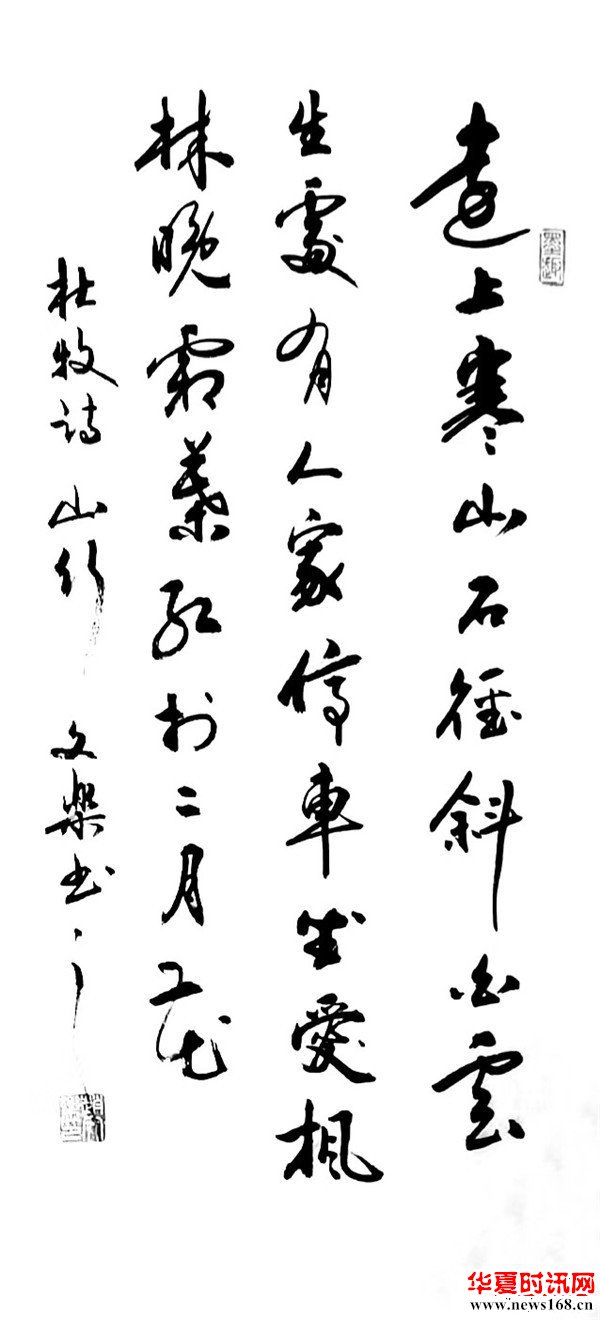 遠上寒山石徑斜白雲
生處有人家停車坐愛楓
林晚霜葉紅於二月花
杜牧詩 山行 文樂书
华夏时讯网
www.news168.cn